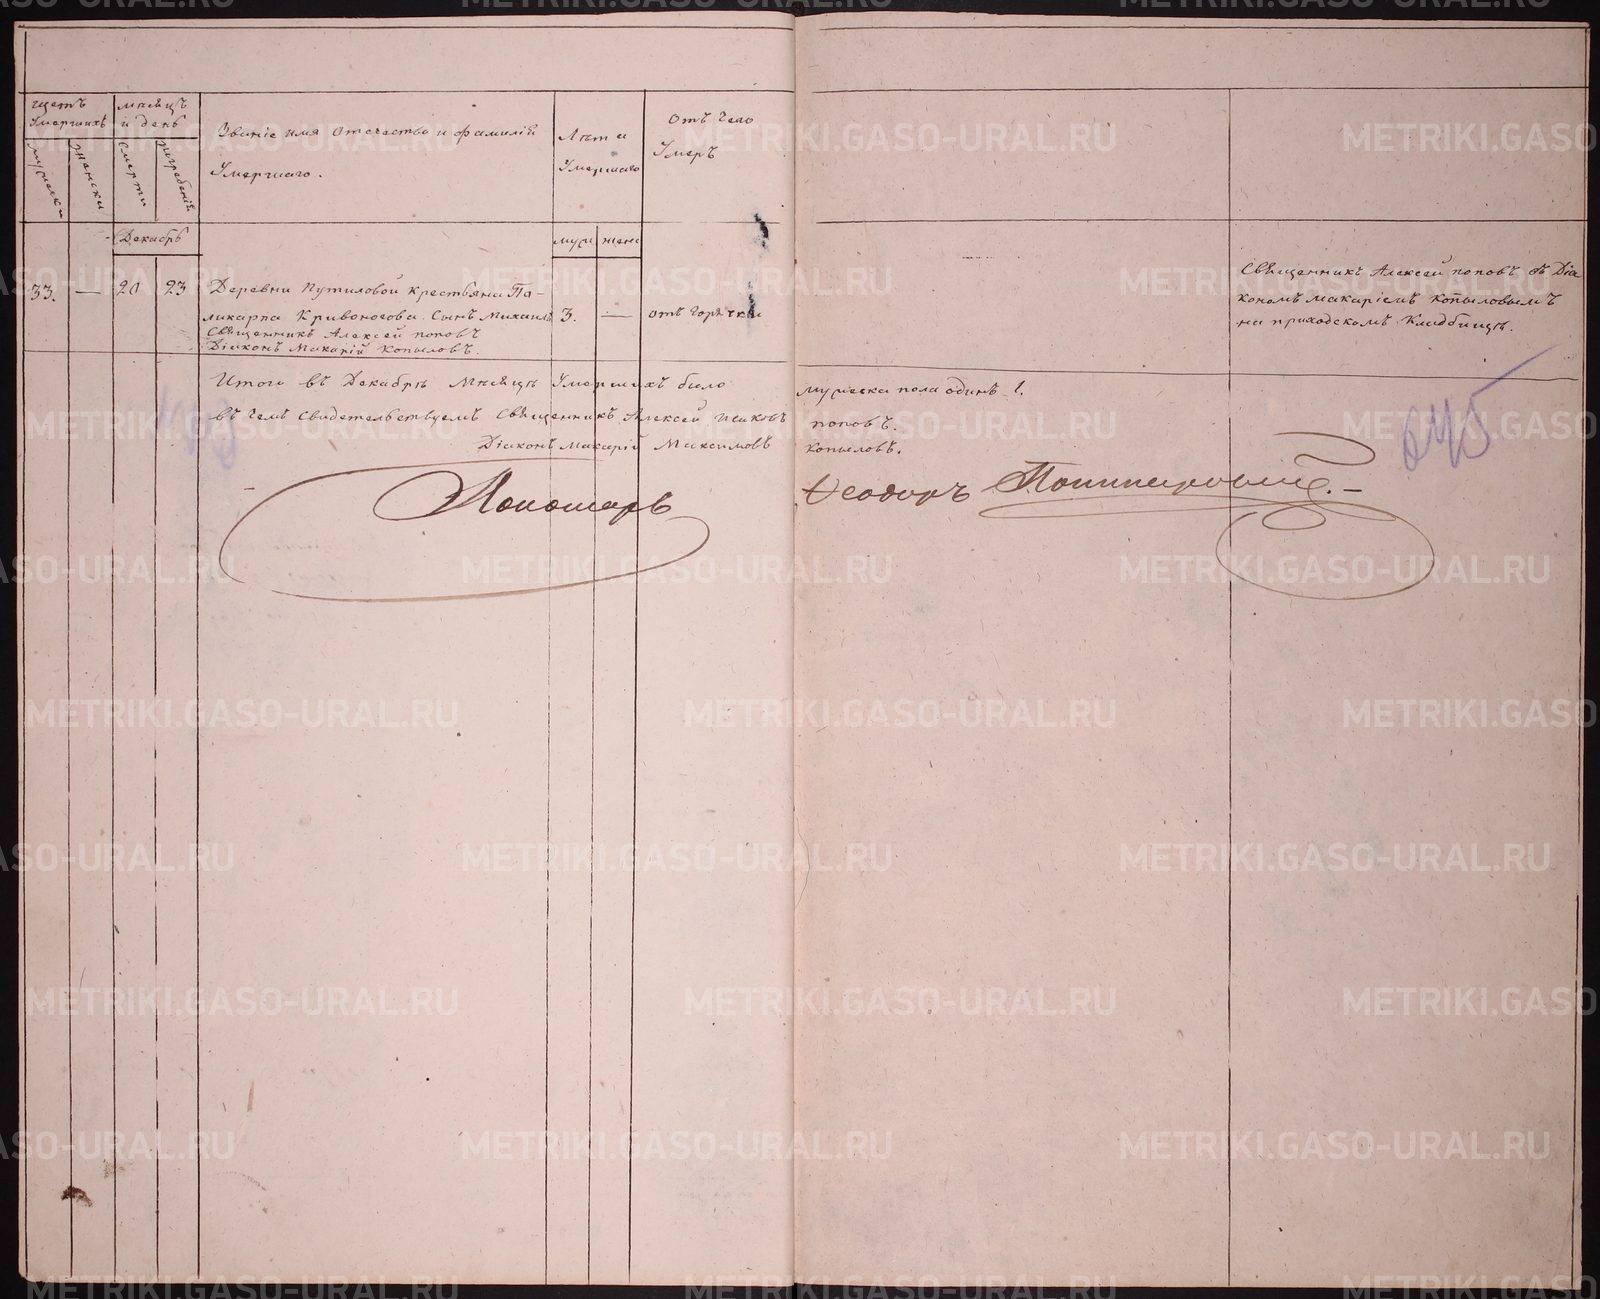 щетъ
Умершихъ
мѣсяцъ
и день
мужеска
женска
смерти
погребенія
Званіе имя отечество и фамилій
Умершаго.
Лѣта
Умершаго
отъ Чего
Умеръ
Декабрь
муж жен
33. — 20 23
Деревни Путиловой крестьяна По-
ликарпа Кривоногова. Сынъ Михаилъ
Священникъ Алексей поповъ
Діаконъ Макарій Копыловъ.
3. —
отъ Горячки
Священникъ Алексей поповъ съ Діа
кономъ макаріемъ копыловымъ
на приходскомъ Кладбищѣ.
Итого въ Декабрѣ Мѣсяцѣ Умершихъ было мужеска пола одинъ 1.
въ чемъ Свидетельствуемъ Священникъ Алексей Исаковъ поповъ.
Діаконъ макарій Максимовъ копыловъ.
Пономарь Ѳеодоръ
645
METRIKI.GASO-URAL.RU